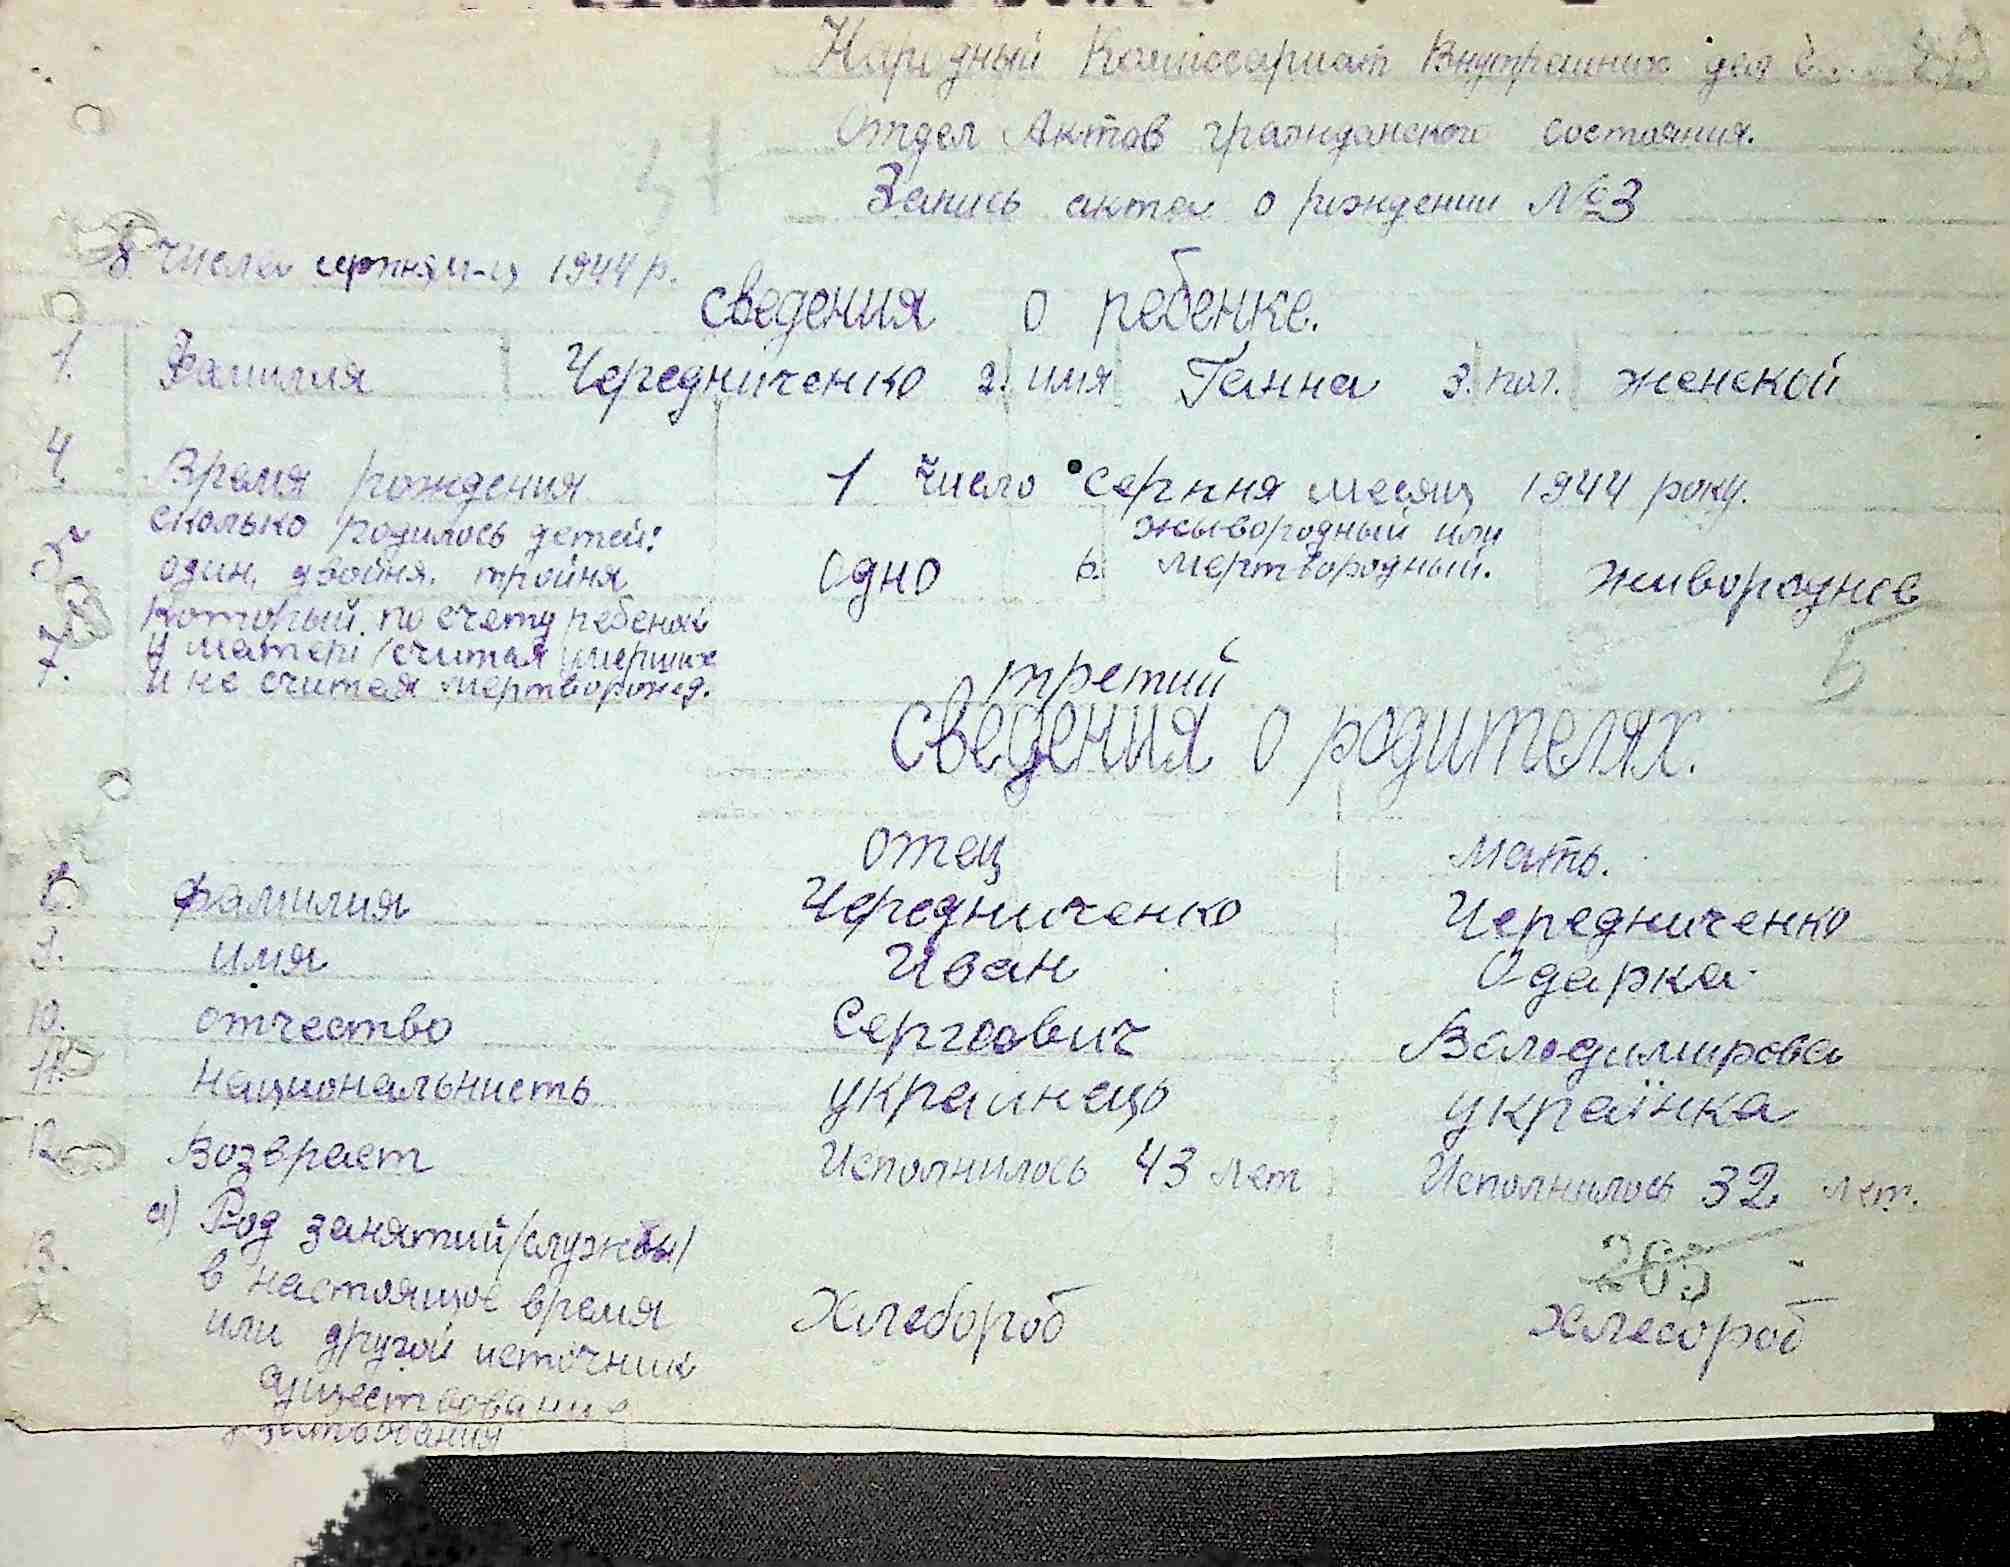 Народный Комиссариат Внутрешних дел
Отдел Актов гражданского состояния.
Запись акта о рождении №3
8 числа серпня м-ц 1944 р.
сведения о ребенке.
1. Фамилля Чередниченко 2. имя Ганна 3. пол. женской
4. Время рождения 1 число серпня месяц 1944 року.
5. сколько родилось детей: один, двойня, тройня Одно 6. жывородный или мертвородный. живороднев
7. который по счету ребенок
у матери /считая умерших
и не считая мертворожд. третий
5
сведения о родителях.
отец мать.
8. фамилия Чередниченко Чередниченко
9. имя Иван Одарка
10. отчество Сергеович Володимирова
11. национальность украинець українка
12. Возраст Исполнилось 43 лет Исполнилось 32 лет.
13. а) Род занятий/службы/
в настоящое время
265
или другой источник Хлебороб Хлебороб
существование